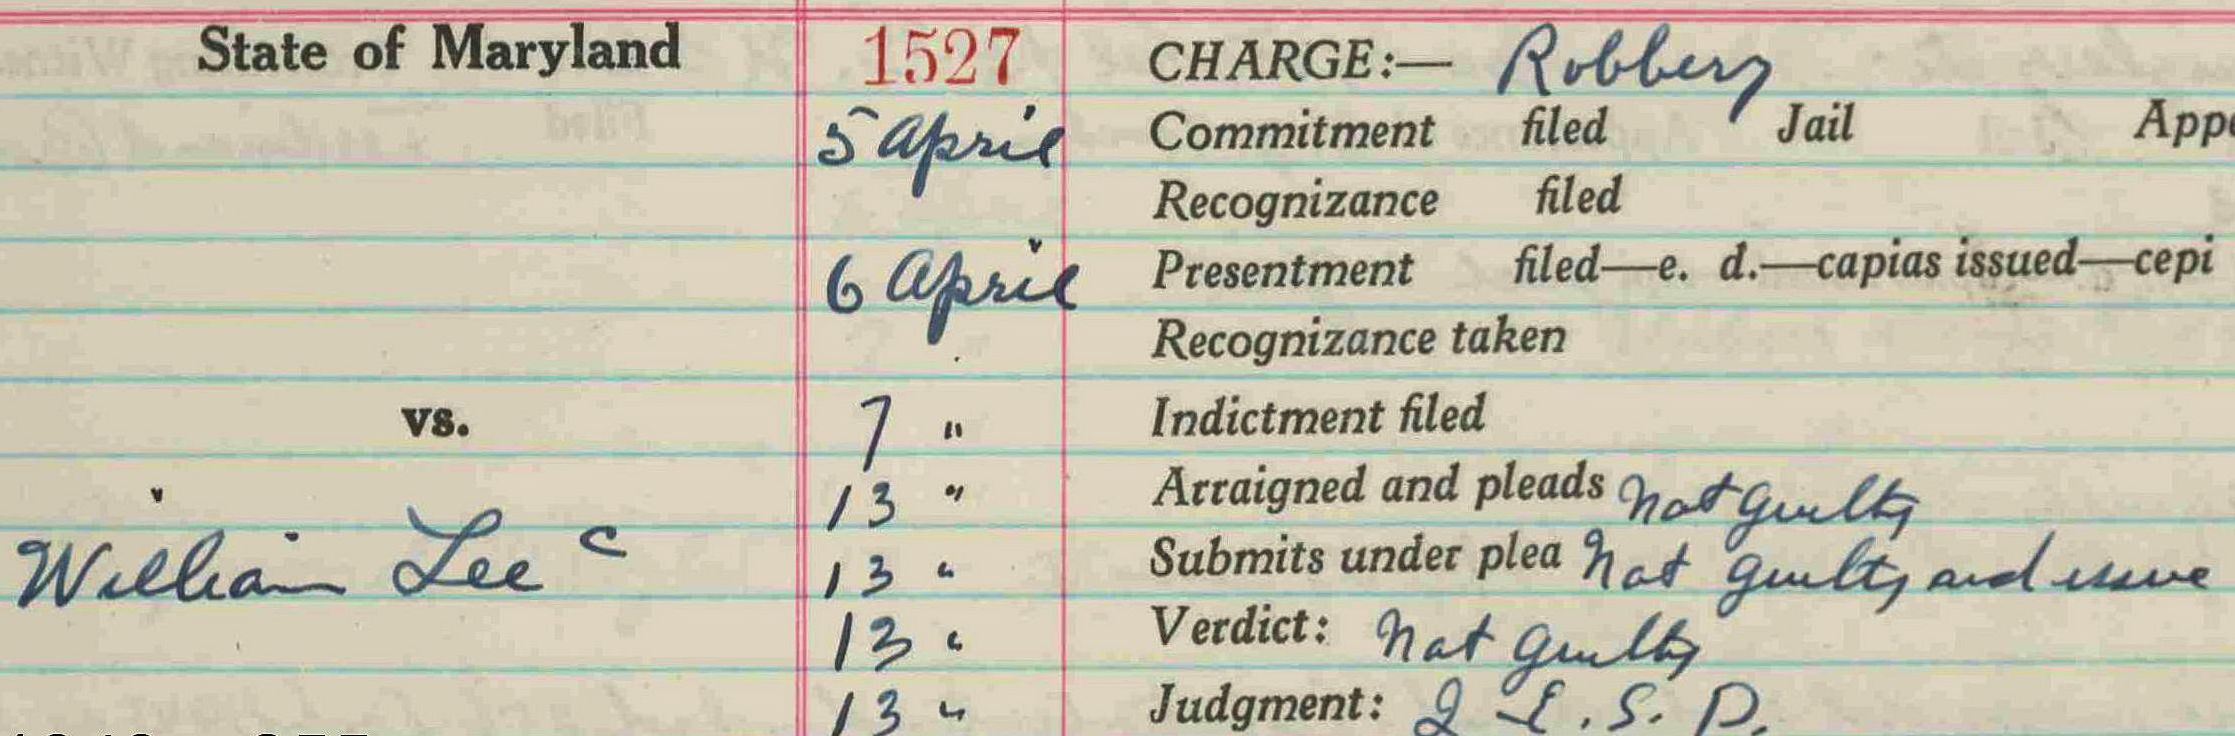 State of Maryland 1527 CHARGE:— Robbery
5 April Commitment filed Jail
Recognizance filed
6 April Presentment filed—e. d.—capias issued—cepi
Recognizance taken
vs. 7 " Indictment filed
13 " Arraigned and pleads Not guilty
William Lee c 13 " Submits under plea Not guilty and issue
13 " Verdict: Not guilty
13 " Judgment: